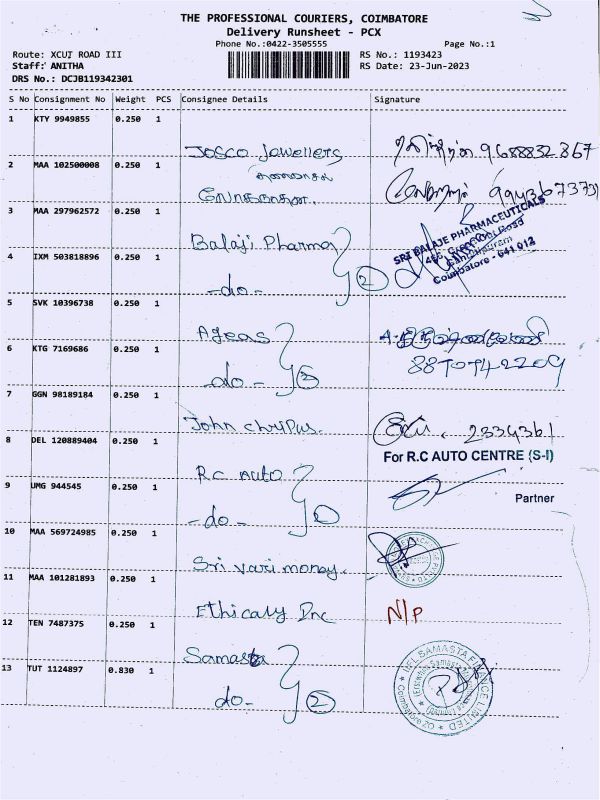 THE PROFESSIONAL COURIERS, COIMBATORE
Delivery Runsheet - PCX
Phone No.:0422-3505555
Page No.:1
Route: XCUT ROAD III
RS No.: 1193423
Staff: ANITHA
RS Date: 23-Jun-2023
DRS No.: DCJB119342301
S No Consignment No Weight PCS Consignee Details Signature
1 KTY 9949855 0.250 1
Josco Jewellers 9688832867
2 MAA 102500008 0.250 1
லோகநாதன். 9943673731
3 MAA 297962572 0.250 1
Balaji Pharma 2
SRI BALAJE PHARMACEUTICALS
Coimbatore - 641 012
4 IXM 503818896 0.250 1
-do-
5 SVK 10396738 0.250 1
Ageas 2
6 KTG 7169686 0.250 1
-do-
8870942209
7 GGN 98189184 0.250 1
John 2334361
8 DEL 120889404 0.250 1
For R.C AUTO CENTRE (S-I)
Rc Auto
9 UMG 944545 0.250 1
Partner
-do-
10 MAA 569724985 0.250 1
Sri vari money.
11 MAA 101281893 0.250 1
Inc N/P
12 TEN 7487375 0.250 1
Samasta 2
13 TUT 1124897 0.830 1
do-
IIFL SAMASTA FINANCE LIMITED